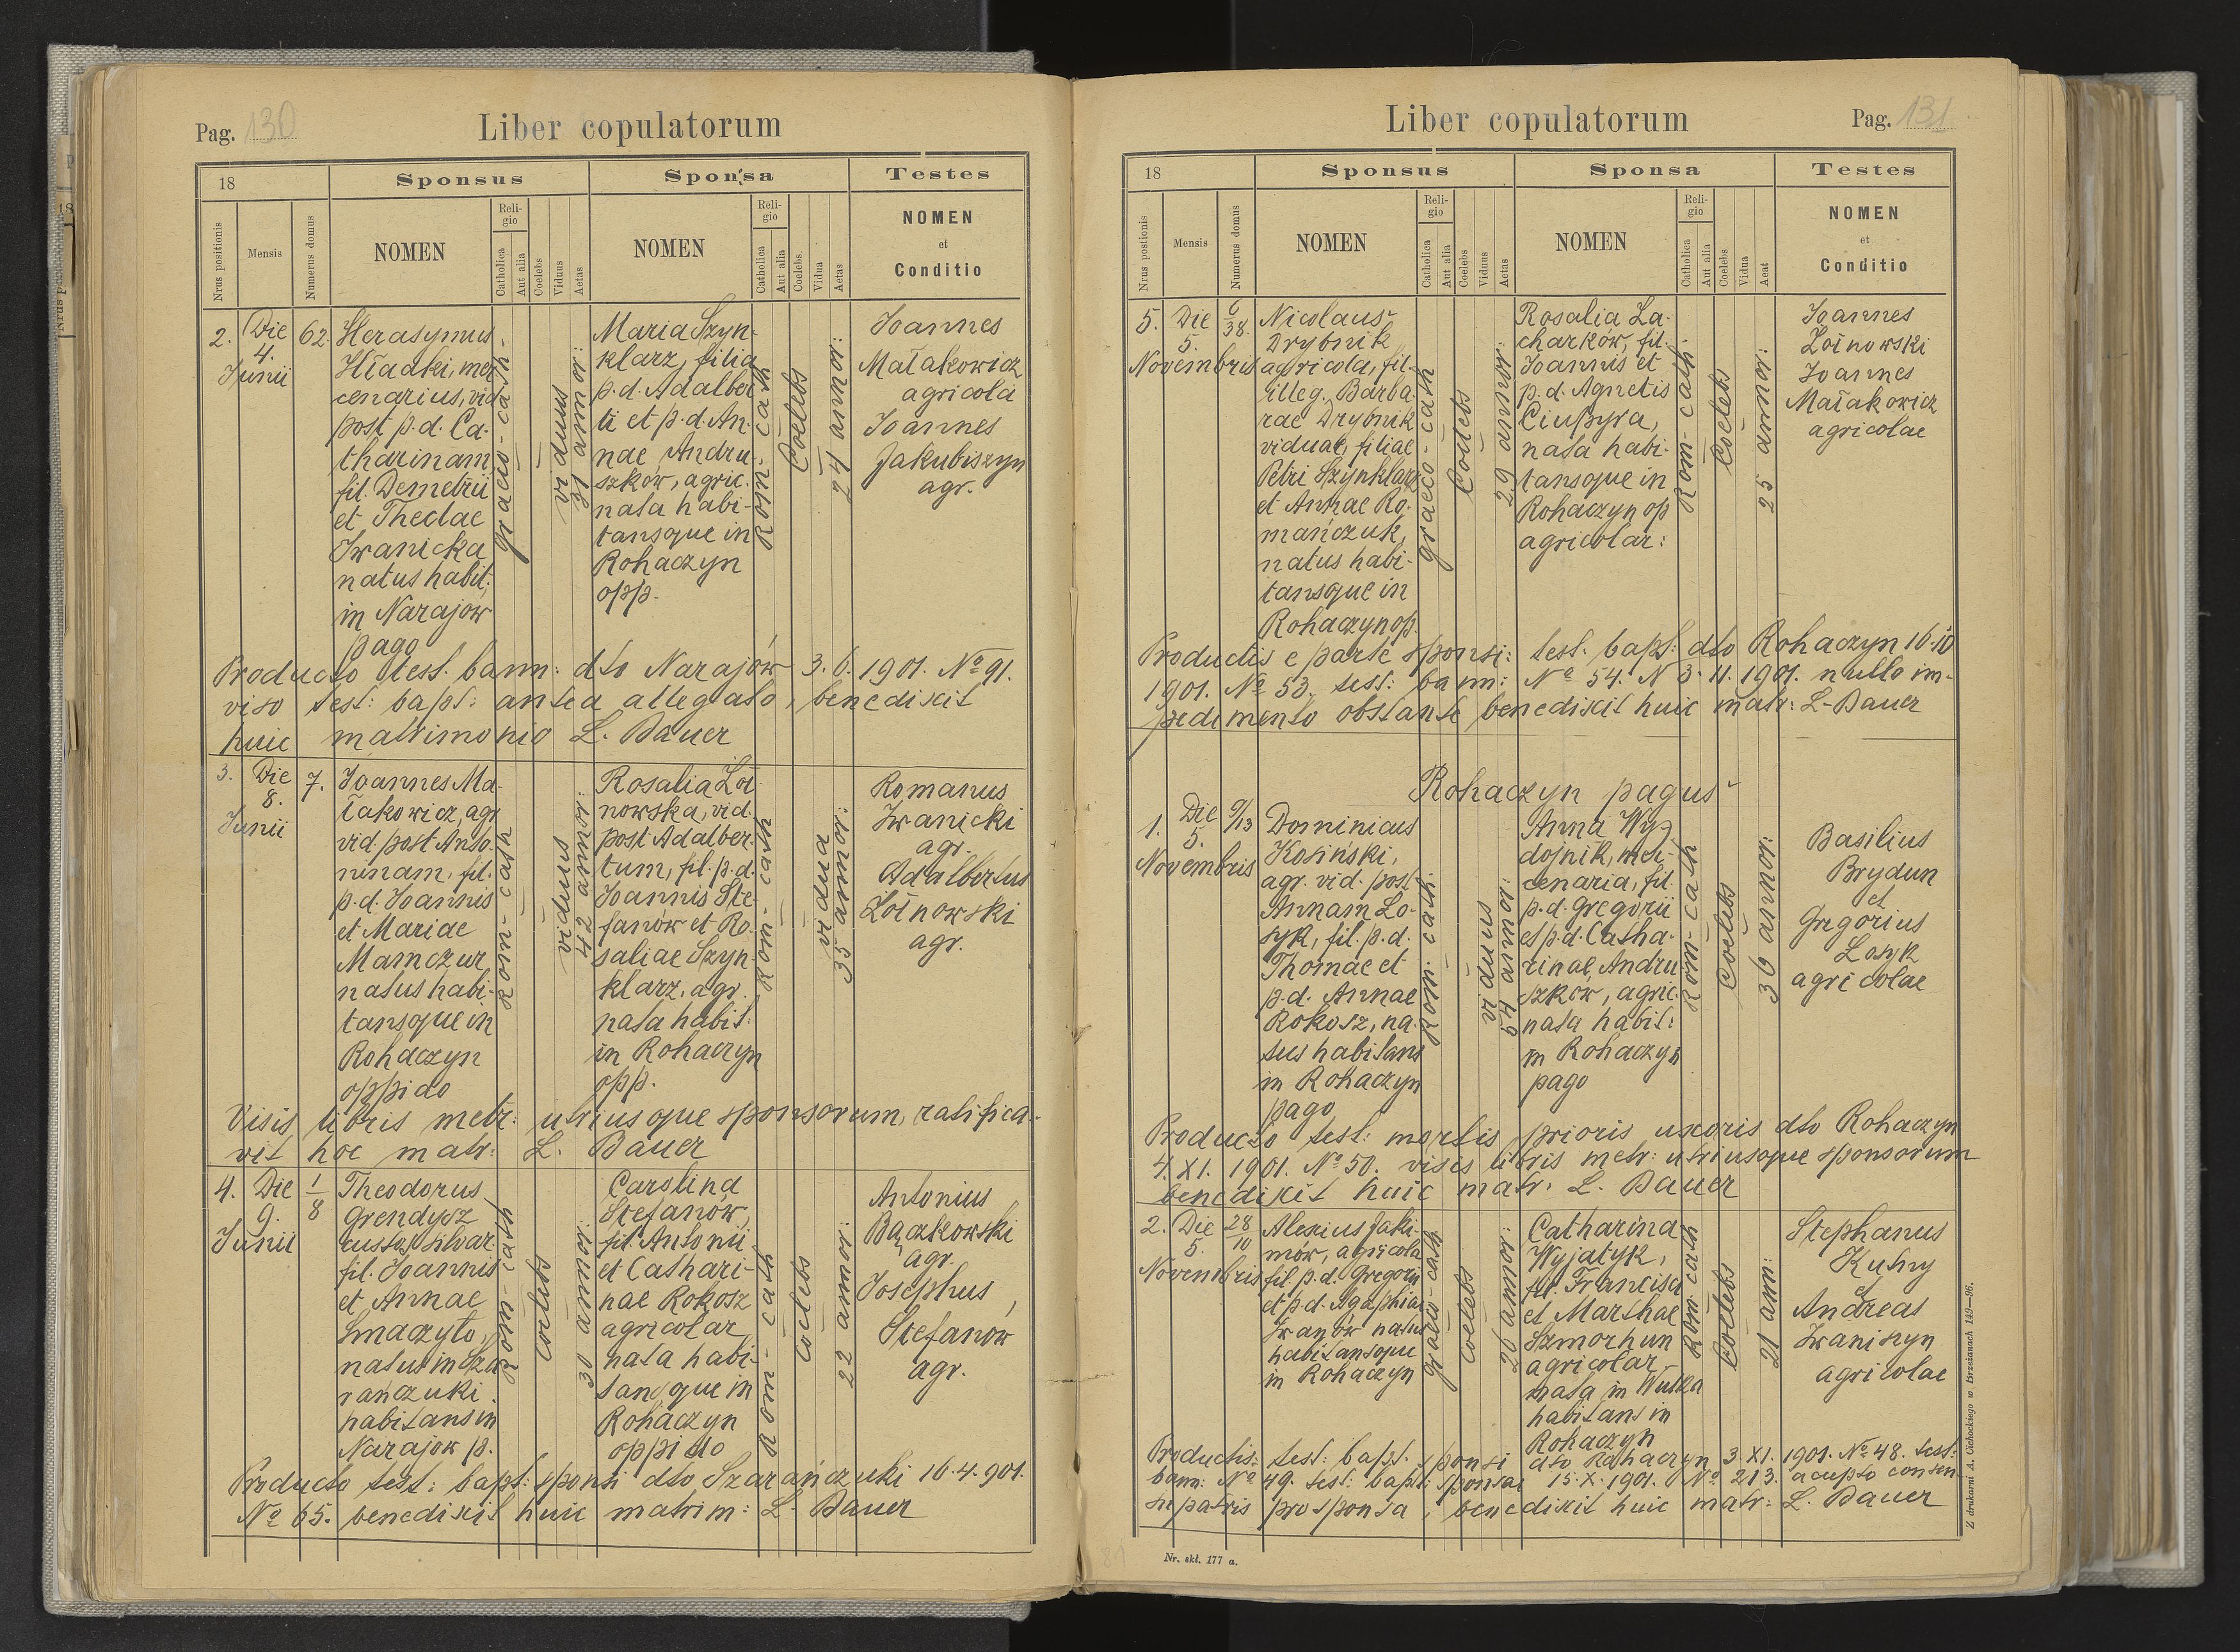 Pag. 130
Liber copulatorum
18
Sponsus
Sponsa
Testes
Nrus positionis
Mensis
Numerus domus
NOMEN
Reli-
gio
Catholica
Aut alia
Coelebs
Viduus
Aetas
NOMEN
Reli-
gio
Catholica
Aut alia
Coelebs
Vidua
Aetas
NOMEN
et
Conditio
2.
Die
4.
Junii
62.
Herasymus
Hładki, mer
cenarius, vid
post p. d. Ca-
tharinam
fil. Demetrii
et Theclae
Iwanicka
natus habit:
in Narajów
pago
graeco-cath-
viduus
31 annor:
Maria Szyn-
klarz, filia
p. d. Adalber
ti et p. d. An-
nae Andru-
szków, agric.
nata habi-
tansque in
Rohaczyn
opp.
Rom-cath
Coelebs
24 annor:
Joannes
Małakowicz
agricola
Joannes
Jakubiszyn
agr.
Producto test. bann: dto Narajów 3. 6. 1901. No 91.
viso test: bapt: antea allegato, benedixit
huic matrimonio L. Bauer
3.
Die
8.
Junii
7.
Joannes Ma-
łakowicz, agr
vid. post Anto-
ninam, fil.
p. d. Joannis
et Mariae
Mamczur
natus habi-
tansque in
Rohaczyn
oppido
Rom-cath
viduus
42 annor:
Rosalia Łoi-
nowska, vid.
post Adalber-
tum, fil. p. d.
Joannis Ste-
fanów et Ro-
saliae Szyn-
klarz, agr.
nata habit:
in Rohaczyn
opp.
Rom-cath
vidua
35 annor:
Romanus
Iwanicki
agr.
Adalbertus
Łoinowski
agr.
Visis libris metr: utriusque sponsorum, ratifica-
vit hoc matr: L. Bauer
4.
Die
9.
Junii
1
8
Theodorus
Grendysz
custos silvar.
fil. Joannis
et Annae
Smaczyło,
natus in Sza
rańczuki
habitans in
Narajów p.
Rom-cath
coelebs
30 annor:
Carolina
Stefanów,
fil. Antonii
et Cathari-
nae Rokosz
agricolar
nata habi-
tansque in
Rohaczyn
oppido
Rom-cath
coelebs
22 annor:
Antonius
Bączkowski
agr.
Josephus
Stefanów
agr.
Producto test: bapt: sponsi dto Szarańczuki 16. 4. 901.
No 65. benedixit huic matrim: L. Bauer
Liber copulatorum
Pag. 131
18
Sponsus
Sponsa
Testes
Nrus postionis
Mensis
Numerus domus
NOMEN
Reli-
gio
Catholica
Aut alia
Coelebs
Viduus
Aetas
NOMEN
Reli-
gio
Catholica
Aut alia
Coelebs
Vidua
Aeat
NOMEN
et
Conditio
5.
Die
5.
Novembris
6
38.
Nicolaus
Drybnik
agricola, fil.
illeg. Barba-
rae Drybnik
viduae, filiae
Petri Szynklarz
et Annae Ro-
mańczuk,
natus habi-
tansque in
Rohaczyn op.
graeco-cath
Coelebs
29 annor:
Rosalia La-
charków, fil.
Joannis et
p. d. Agnetis
Ciupyra,
nata habi-
tansque in
Rohaczyn op
agricolar:
Rom-cath
Coelebs
25 annor:
Joannes
Łoinowski
Joannes
Małakowicz
agricolae
Productis e parte sponsi: test. bapt: dto Rohaczyn 16. 10
1901. No 53. test: bann: No 54. N 3. 11. 1901. nullo im-
pedimento obstante benedixit huic matr: L. Bauer
Rohaczyn pagus
1.
Die
5.
Novembris
9/13
Dominicus
Kosiński,
agr. vid. post
Annam Ło-
syk, fil. p. d.
Thomae et
p. d. Annae
Rokosz, na-
tus habitans
in Rohaczyn
pago
Rom. cath:
viduus
54 annor:
Anna Wyz
dojnik, mer-
cenaria, fil.
p. d. Gregorii
et p. d. Catha-
rinae, Andru
szków, agric.
nata habit:
in Rohaczyn
pago
Rom-cath
Coelebs
36 annor:
Basilius
Brydun
et
Gregorius
Łosyk
agricolae
Producto test: mortis prioris uxoris dto Rohaczyn
4. XI. 1901. No 50. visis libris metr: utriusque sponsorum
benedixit huic matr. L. Bauer
2.
Die
5.
Novembris
28
10
Alexius Jaki-
mów, agricola
fil. p. d. Gregorii
et p. d. Agaphiae
Iwanów natus
habitansque
in Rohaczyn
graeco-cath
Coelebs
26 annor:
Catharina
Wyjatyk,
fil. Francisci
et Marthae
Szmorhun
agricolar
nata in Wulka
habitans in
Rohaczyn
Rom-cath
Coelebs
21 ann:
Stephanus
Kuhny
et
Andreas
Iwaniszyn
agricolae
Productis: test: bapt. sponsi dto Rohaczyn 3. XI. 1901. No 48. test:
bann: No 49. test: bapt: sponsae 15. X. 1901. No 213. accepto consen-
su patris pro sponsa, benedixit huic matr: L. Bauer
Nr. skł. 177 a.
Z drukarni A. Cichockiego w Brzeżanach 149—96.